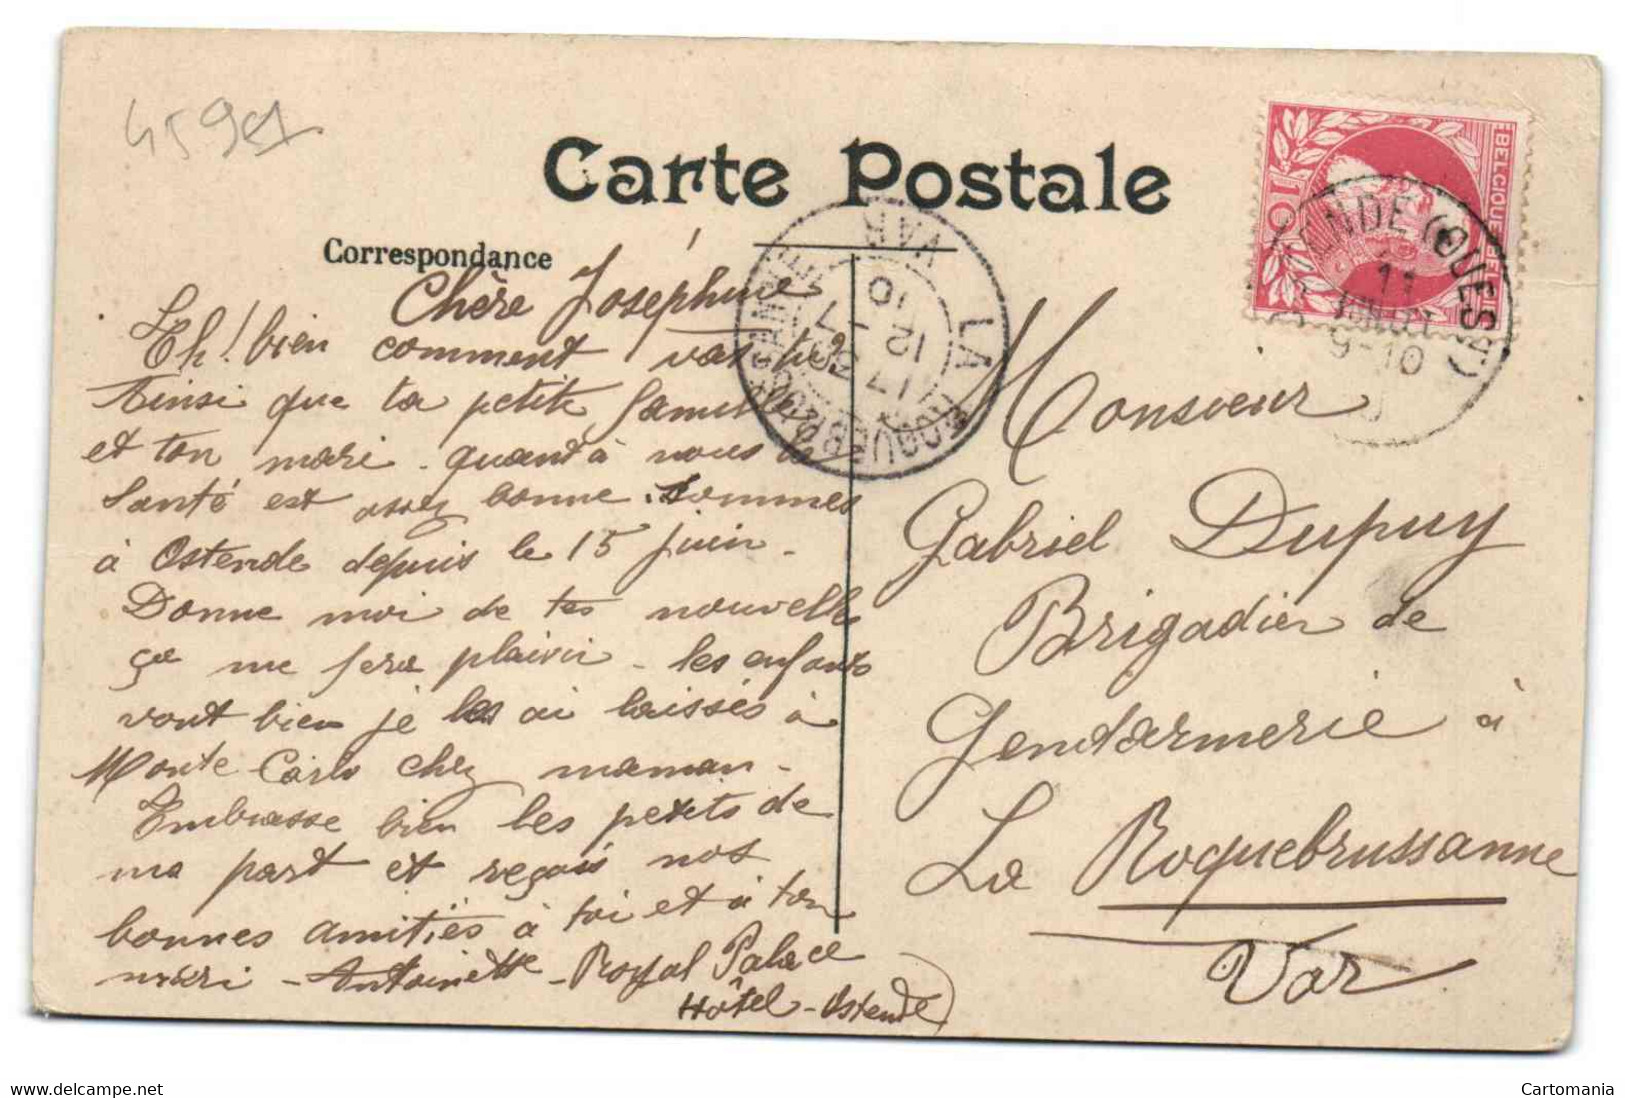 4591
Carte Postale
Correspondance
Chère Joséphine
Eh! bien comment vas tu?
Ainsi que ta petite famille
et ton mari - quant à nous la
santé est assez bonne. Sommes
à Ostende depuis le 15 juin -
Donne moi de tes nouvelle
ça me fera plaisir - les enfants
vont bien je les ai laissés à
Monte-Carlo chez maman -
Embrasse bien les petits de
ma part et reçois nos
bonnes amitiës à toi et à ton
mari - Antoinette - Royal Palace
Hôtel - Ostende)
BELGIQUE
10
OSTENDE (OUEST)
11
9-10
LA ROQUEBRUSSANNE
VAR
12
10
Monsieur
Gabriel Dupuy
Brigadier de
Gendarmerie à
La Roquebrussanne
Var
www.delcampe.net
Cartomania